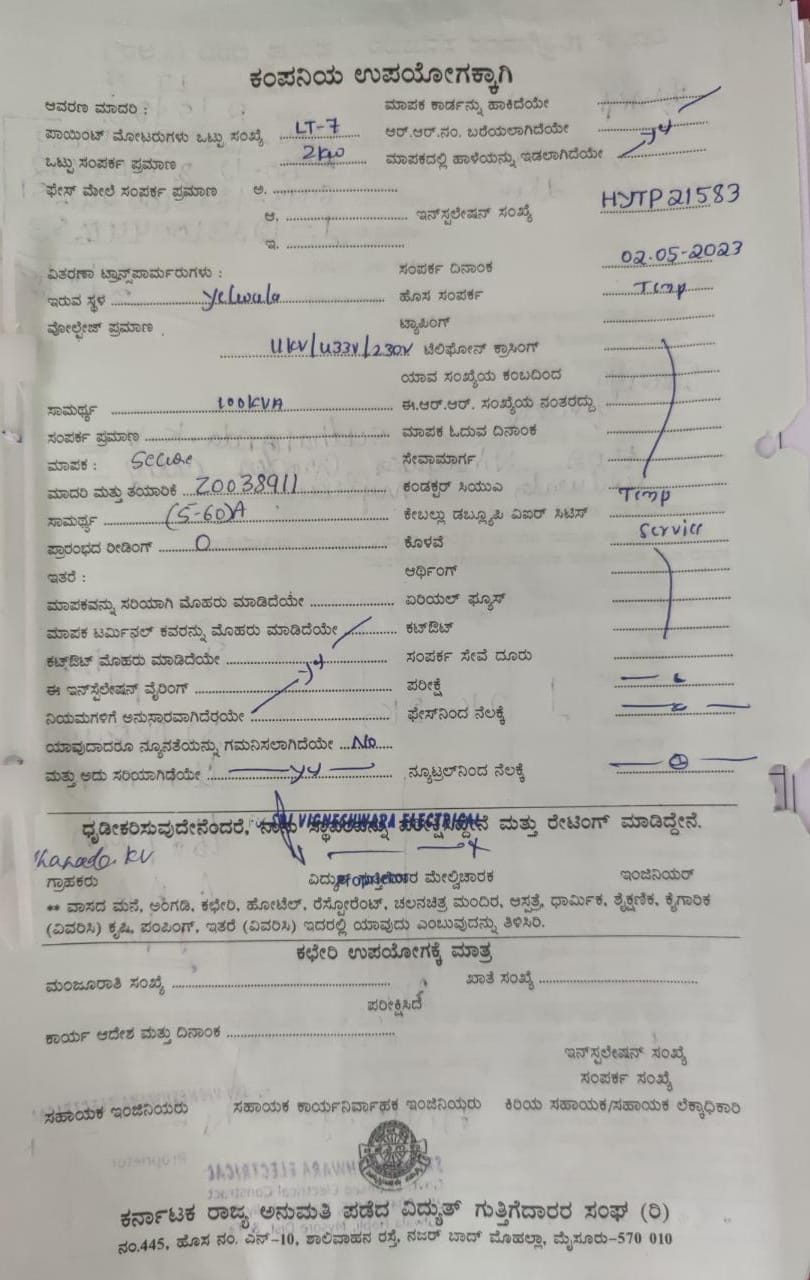 ಕಂಪನಿಯ ಉಪಯೋಗಕ್ಕಾಗಿ
ಆವರಣ ಮಾದರಿ : ಮಾಪಕ ಕಾರ್ಡನ್ನು ಹಾಕಿದೆಯೇ
ಪಾಯಿಂಟ್ ಮೋಟರುಗಳು ಒಟ್ಟು ಸಂಖ್ಯೆ LT-7 ಆರ್.ಆರ್.ನಂ. ಬರೆಯಲಾಗಿದೆಯೇ
ಒಟ್ಟು ಸಂಪರ್ಕ ಪ್ರಮಾಣ 2kw ಮಾಪಕದಲ್ಲಿ ಹಾಳೆಯನ್ನು ಇಡಲಾಗಿದೆಯೇ
ಫೇಸ್ ಮೇಲೆ ಸಂಪರ್ಕ ಪ್ರಮಾಣ ಅ.
ಆ. ಇನ್‌ಸ್ಟಲೇಷನ್ ಸಂಖ್ಯೆ HYTP21583
ಇ.
ವಿತರಣಾ ಟ್ರಾನ್ಸ್‌ಪಾರ್ಮರುಗಳು : ಸಂಪರ್ಕ ದಿನಾಂಕ 02.05-2023
ಇರುವ ಸ್ಥಳ Yelwala ಹೊಸ ಸಂಪರ್ಕ Temp
ವೋಲ್ಟೇಜ್ ಪ್ರಮಾಣ ಟ್ಯಾಪಿಂಗ್
11KV/433V/230V ಟೆಲಿಫೋನ್ ಕ್ರಾಸಿಂಗ್
ಯಾವ ಸಂಖ್ಯೆಯ ಕಂಬದಿಂದ
ಸಾಮರ್ಥ್ಯ 100KVA ಈ.ಆರ್.ಆರ್. ಸಂಖ್ಯೆಯ ನಂತರದ್ದು
ಸಂಪರ್ಕ ಪ್ರಮಾಣ ಮಾಪಕ ಓದುವ ದಿನಾಂಕ
ಮಾಪಕ : Secure ಸೇವಾಮಾರ್ಗ
ಮಾದರಿ ಮತ್ತು ತಯಾರಿಕೆ Z0038911 ಕಂಡಕ್ಟರ್ ಸಿಯುಎ Temp
ಸಾಮರ್ಥ್ಯ (5-60)A ಕೇಬಲ್ಲು ಡಬ್ಲ್ಯೂಪಿ ವಿಐರ್ ಸಿಟಿಸ್
ಪ್ರಾರಂಭದ ರೀಡಿಂಗ್ 0 ಕೊಳವೆ Service
ಇತರೆ : ಆರ್ಥಿಂಗ್
ಮಾಪಕವನ್ನು ಸರಿಯಾಗಿ ಮೊಹರು ಮಾಡಿದೆಯೇ ಏರಿಯಲ್ ಫ್ಯೂಸ್
ಮಾಪಕ ಟರ್ಮಿನಲ್ ಕವರನ್ನು ಮೊಹರು ಮಾಡಿದೆಯೇ ಕಟ್‌ಔಟ್
ಕಟ್‌ಔಟ್ ಮೊಹರು ಮಾಡಿದೆಯೇ ಸಂಪರ್ಕ ಸೇವೆ ದೂರು
ಈ ಇನ್‌ಸ್ಟೆಲೇಷನ್ ವೈರಿಂಗ್ ಪರೀಕ್ಷೆ
ನಿಯಮಗಳಿಗೆ ಅನುಸಾರವಾಗಿದೆರಯೇ ಫೇಸ್‌ನಿಂದ ನೆಲಕ್ಕೆ
ಯಾವುದಾದರೂ ನ್ಯೂನತೆಯನ್ನು ಗಮನಿಸಲಾಗಿದೆಯೇ No
ಮತ್ತು ಅದು ಸರಿಯಾಗಿಡೆಯೇ ನ್ಯೂಟ್ರಲ್‌ನಿಂದ ನೆಲಕ್ಕೆ
VIGNESHWARA ELECTRICAL
ಧೃಡೀಕರಿಸುವುದೇನೆಂದರೆ, ಮತ್ತು ರೇಟಿಂಗ್ ಮಾಡಿದ್ದೇನೆ.
ಗ್ರಾಹಕರು ಮೇಲ್ವಿಚಾರಕ ಇಂಜಿನಿಯರ್
** ವಾಸದ ಮನೆ, ಅಂಗಡಿ, ಕಛೇರಿ, ಹೋಟೆಲ್, ರೆಸ್ಟೋರೆಂಟ್, ಚಲನಚಿತ್ರ ಮಂದಿರ, ಆಸ್ಪತ್ರೆ, ಧಾರ್ಮಿಕ, ಶೈಕ್ಷಣಿಕ, ಕೈಗಾರಿಕ
(ವಿವರಿಸಿ) ಕೃಷಿ, ಪಂಪಿಂಗ್, ಇತರೆ (ವಿವರಿಸಿ) ಇದರಲ್ಲಿ ಯಾವುದು ಎಂಬುವುದನ್ನು ತಿಳಿಸಿರಿ.
ಕಛೇರಿ ಉಪಯೋಗಕ್ಕೆ ಮಾತ್ರ
ಮಂಜೂರಾತಿ ಸಂಖ್ಯೆ ಖಾತೆ ಸಂಖ್ಯೆ
ಪರೀಕ್ಷಿಸಿದೆ
ಕಾರ್ಯ ಆದೇಶ ಮತ್ತು ದಿನಾಂಕ
ಇನ್‌ಸ್ಟಲೇಷನ್ ಸಂಖ್ಯೆ
ಸಂಪರ್ಕ ಸಂಖ್ಯೆ
ಸಹಾಯಕ ಇಂಜಿನಿಯರು ಸಹಾಯಕ ಕಾರ್ಯನಿರ್ವಾಹಕ ಇಂಜಿನಿಯರು ಕಿರಿಯ ಸಹಾಯಕ/ಸಹಾಯಕ ಲೆಕ್ಕಾಧಿಕಾರಿ
ಕರ್ನಾಟಕ ರಾಜ್ಯ ಅನುಮತಿ ಪಡೆದ ವಿದ್ಯುತ್ ಗುತ್ತಿಗೆದಾರರ ಸಂಘ (ರಿ)
ನಂ.445, ಹೊಸ ನಂ. ಎನ್-10, ಶಾಲಿವಾಹನ ರಸ್ತೆ, ನಜರ್ ಬಾದ್ ಮೊಹಲ್ಲಾ, ಮೈಸೂರು-570 010